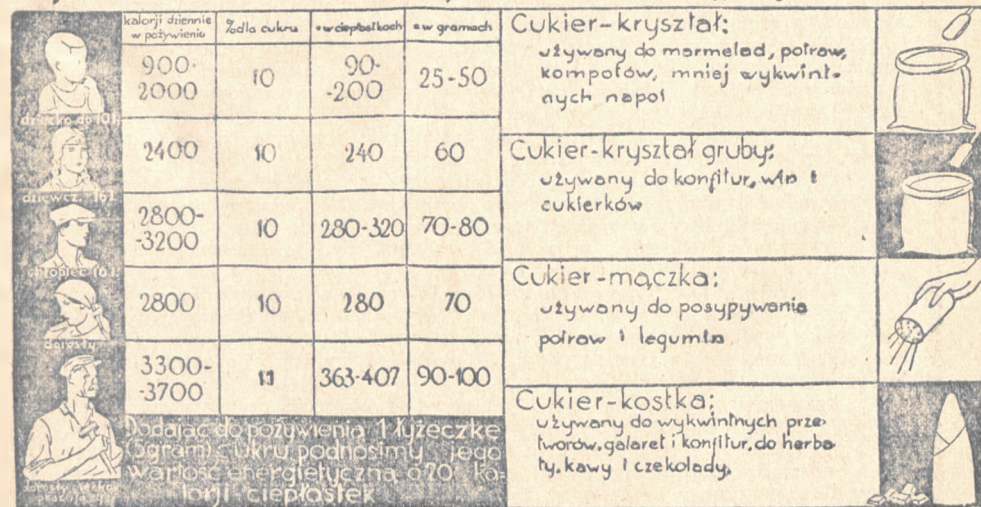 kalorji dziennie
w pożywieniu
%dla cukru
" w ciepłostkach
" w gramach
dziecko do 10 l.
900-
2000
10
90-
-200
25-50
dziewcz. 16 l.
2400
10
240
60
chłopiec 16 l.
2800-
-3200
10
280-320
70-80
dorosły
2800
10
280
70
3300-
-3700
11
363-407
90-100
Dodając do pożywienia 1 łyżeczkę
cukru podnosimy jego
wartość energietyczną o 20 ka-
lorji ciepłostek
Cukier-kryształ:
używany do marmelad, potraw,
kompotów, mniej wykwint-
nych napoi
Cukier-kryształ gruby:
używany do konfitur, win i
cukierków
Cukier-mączka:
używany do posypywania
potraw i legumin
Cukier-kostka:
używany do wykwintnych prze-
tworów, galaret i konfitur, do herba-
ty, kawy i czekolady,